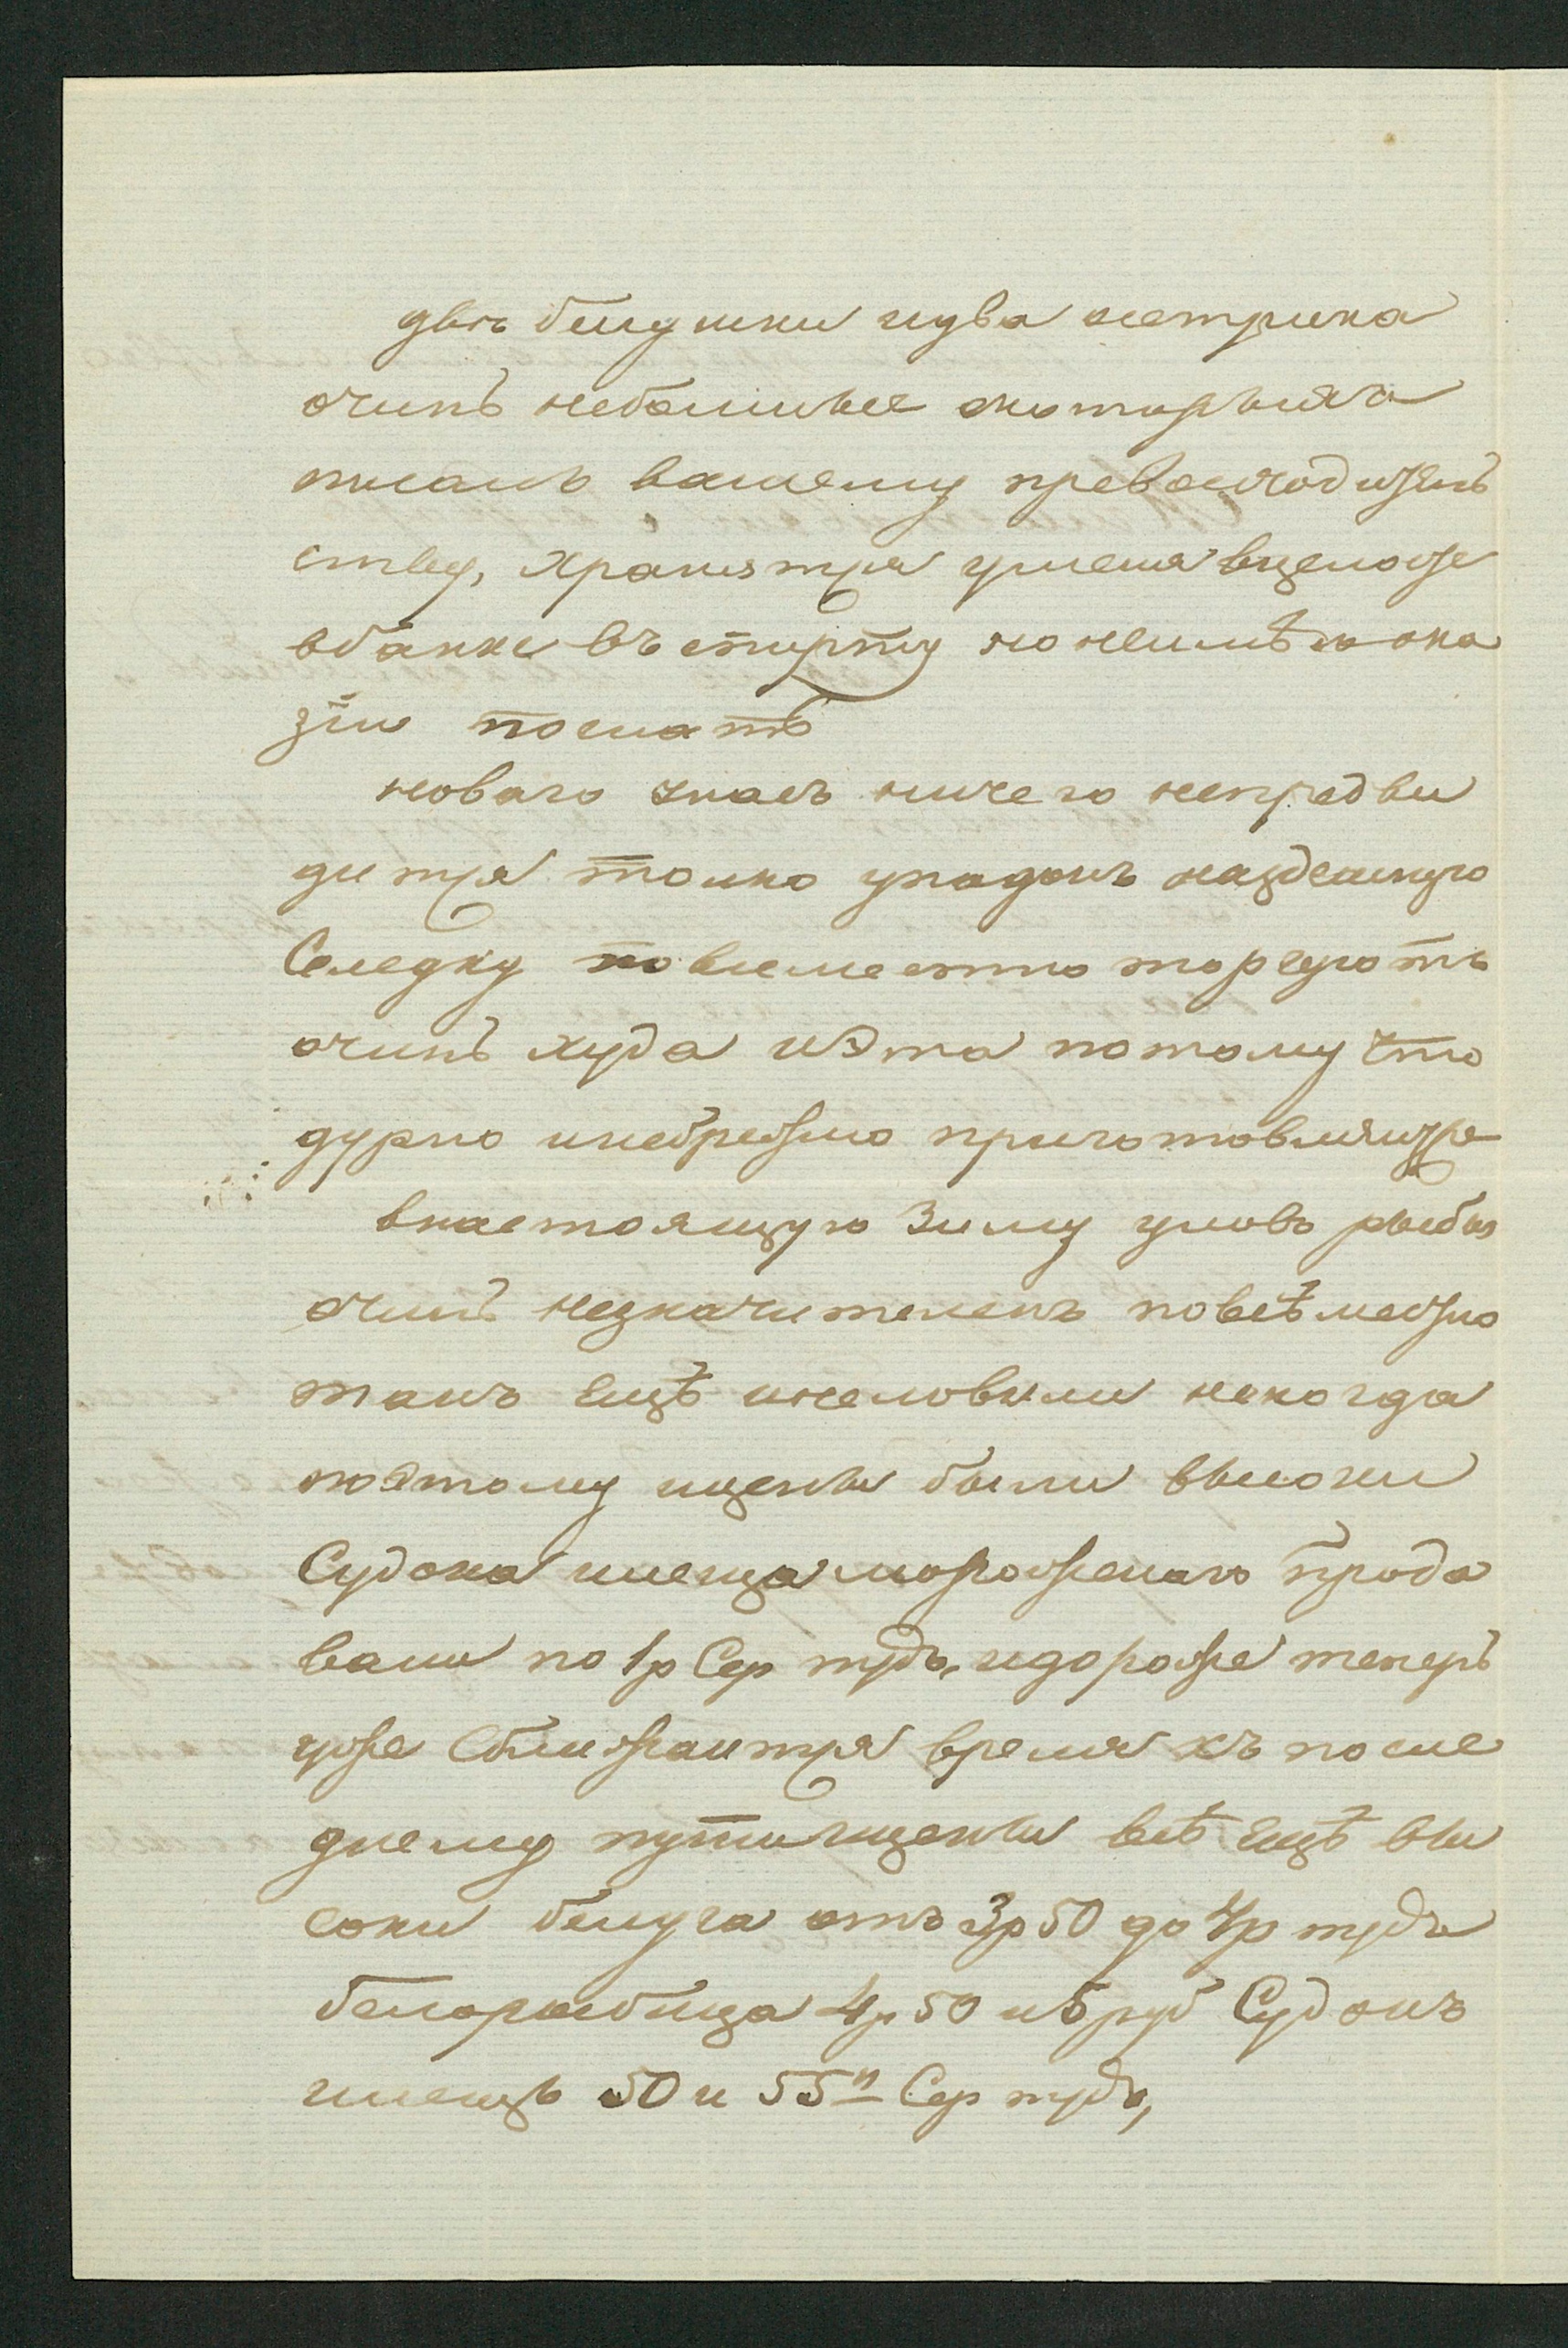 две белушки идва осетрика
очинь небольшые окоторыхъ я
писалъ вашему превосходитель
ству, хранятся уменя вцелосте
вбанке въ спирту но неимѣю ока
зіи послать
новаго унасъ ничего непредви
дится толко упадокъ наздешнюю
Селедку повсеместно торгуютъ
очинь худа иэта потому что
дурно инебрежно приготовляится
внастоящую Зиму уловъ рыбы
очинь незначителенъ повсѣместно
такъ Ещѣ инеловили некогда
поэтому ицены были высоки
Судока илеща мороженаго прода
вали по 1р Сер пудъ, идороже теперь
уже Сближаится время къ после
днему пути ицены всѣ Ещѣ вы
соки белуга отъ 3р 50 до 4р пудъ
белорыбица 4р 50 и 5 руб Судокъ
илещь 50 и 55к Сер пудъ,